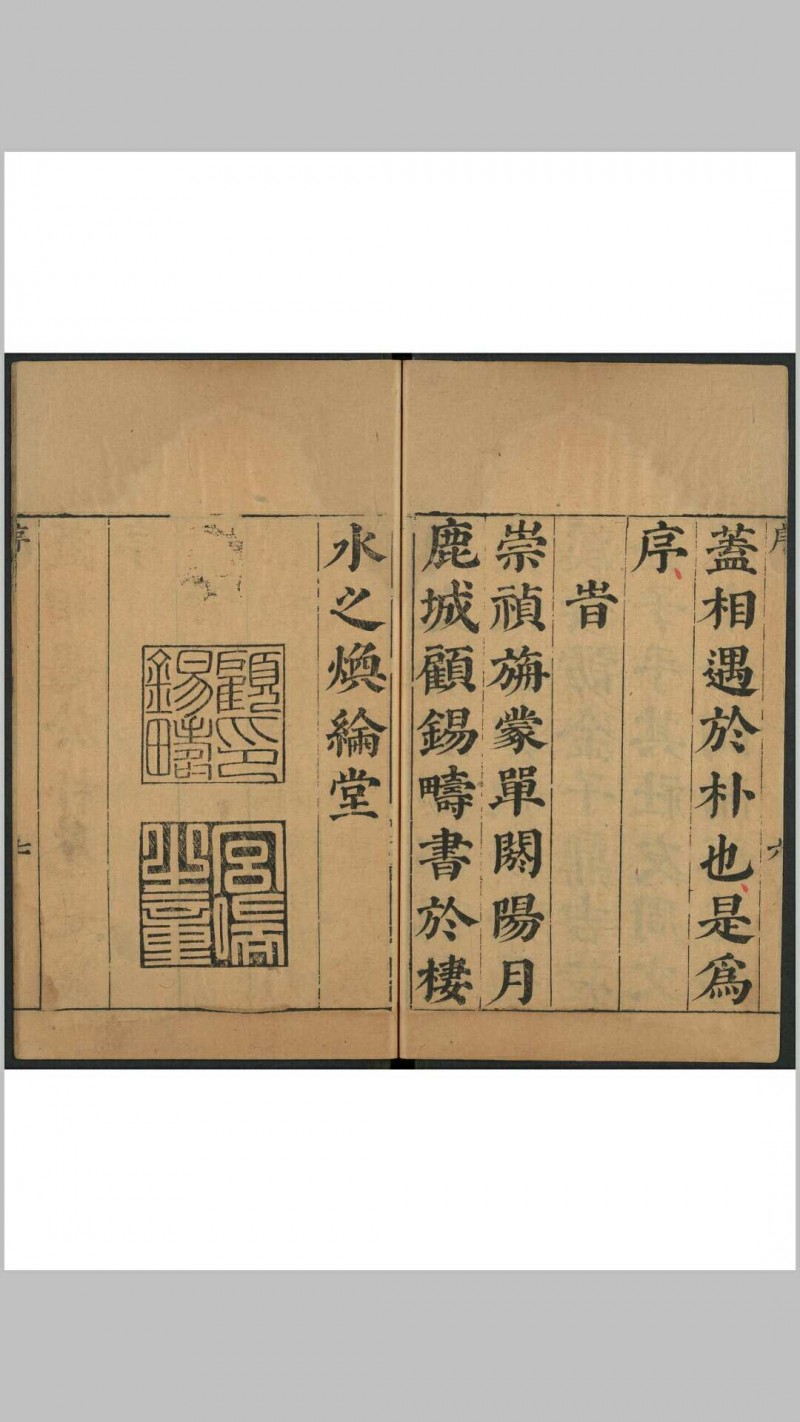 序
六
蓋相遇於朴也是爲
序
旹
崇禎旃蒙單閼陽月
鹿城顧錫疇書於棲
水之煥綸堂
顧印
錫疇
序
七